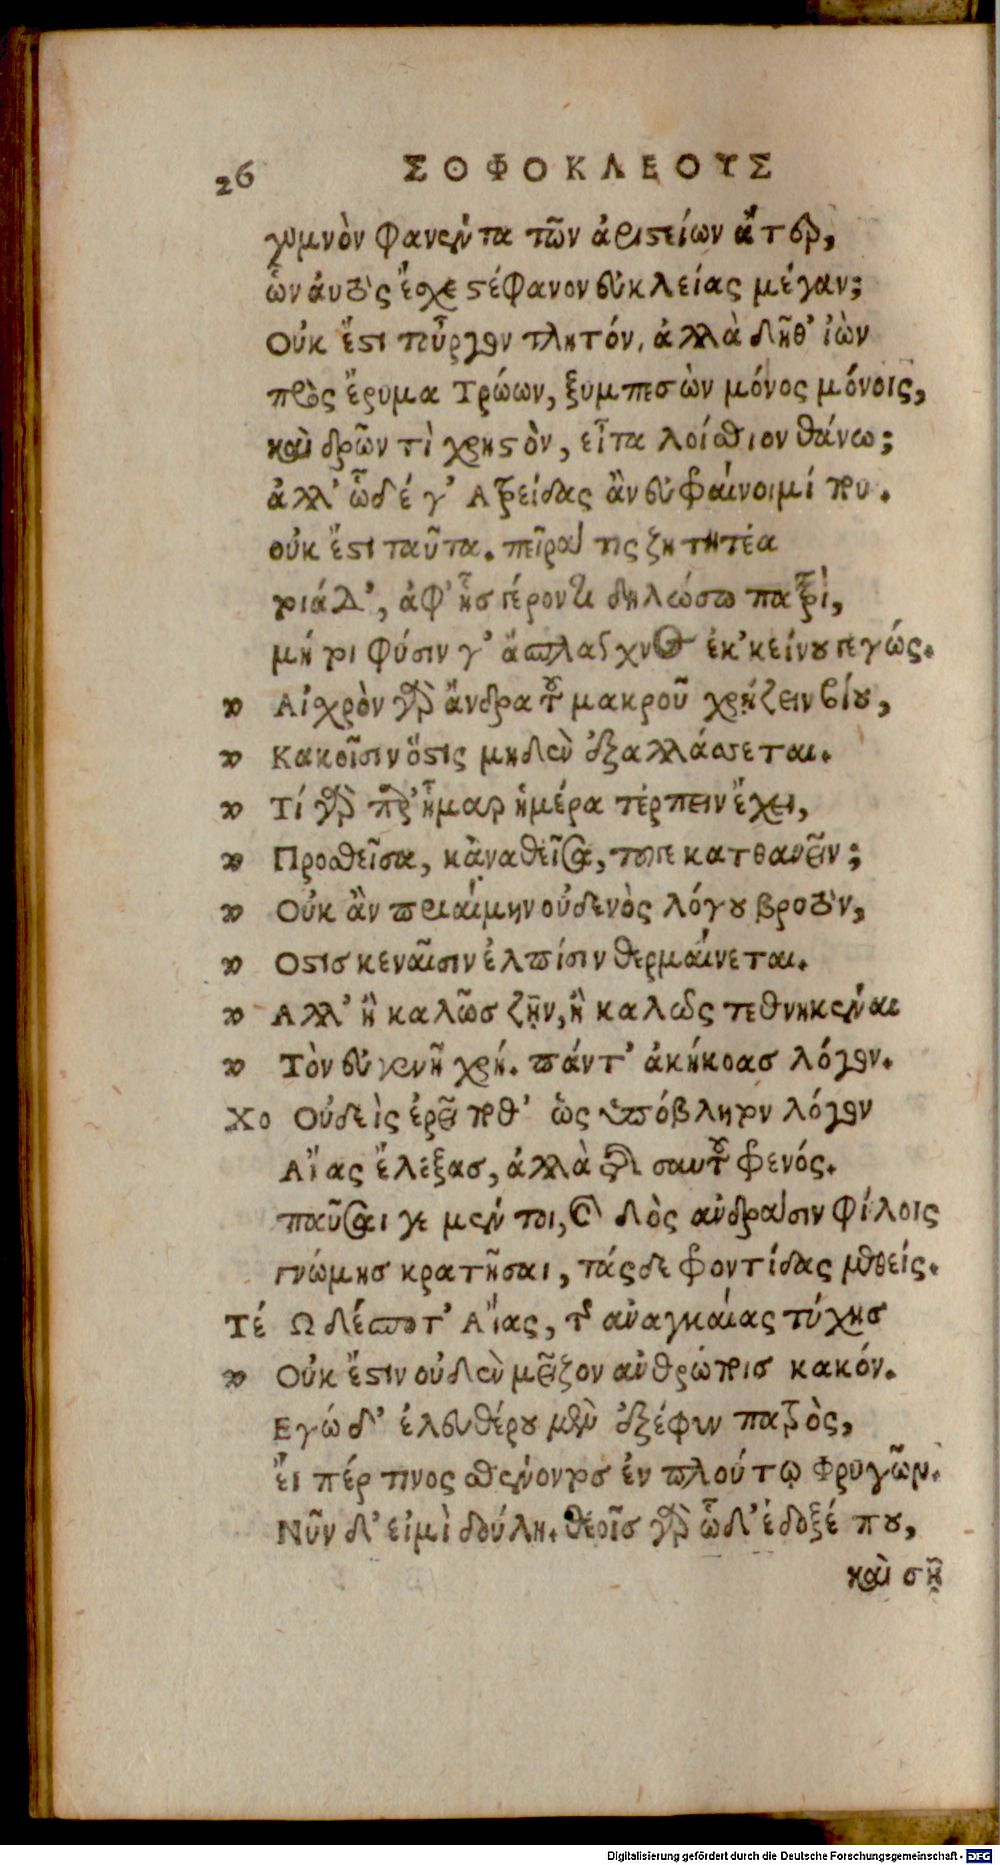 26 ΣΟΦΟΚΛΕΟΥΣ
γυμνὸν φανέντα τῶν ἀριστείων ἄτερ,
ὧν αὐτὸς ἔσχε στέφανον εὐκλείας μέγαν;
Οὐκ ἔστι τοὖργον τλητόν, ἀλλὰ δῆθ' ἰὼν
πρὸς ἔρυμα Τρώων, ξυμπεσὼν μόνος μόνοις,
καὶ δρῶν τὶ χρηστὸν, εἶτα λοίσθιον θάνω;
ἀλλ' ὧδέ γ' Ατρείδας ἂν εὐφράναιμί που.
οὐκ ἔστι ταῦτα. πεῖρά τις ζητητέα
τοιάδ', ἀφ' ἧσ γέροντι δηλώσω πατρὶ,
μή τοι φύσιν γ' ἄσπλαγχνος ἐκ' κείνου γεγώς.
» Αἰσχρὸν γὰρ ἄνδρα τοῦ μακροῦ χρῄζειν βίου,
» Κακοῖσιν ὅστις μηδὲν ἐξαλλάσσεται.
» Τί γὰρ παρ' ἦμαρ ἡμέρα τέρπειν ἔχει,
» Προσθεῖσα, κἀναθεῖσα, τοῦγε κατθανεῖν;
» Οὐκ ἂν πριαίμην οὐδενὸς λόγου βροτὸν,
» Οστισ κεναῖσιν ἐλπίσιν θερμαίνεται.
» Αλλ' ἢ καλῶσ ζῆν, ἢ καλῶς τεθνηκέναι
» Τὸν εὐγενῆ χρή. πάντ' ἀκήκοασ λόγον.
Χο Οὐδεὶς ἐρεῖ ποθ' ὡς ὑπόβλητον λόγον
Αἴας ἔλεξασ, ἀλλὰ τῆς σαυτοῦ φρενός.
παῦσαι γε μέντοι, καὶ δὸς ἀνδράσιν φίλοις
γνώμησ κρατῆσαι, τάσδε φροντίδας μεθείς.
Τέ Ω δέσποτ' Αἴας, τῆς ἀναγκαίας τύχησ
» Οὐκ ἔστιν οὐδὲν μεῖζον ἀνθρώποισ κακόν.
Εγώ δ' ἐλευθέρου μὲν ἐξέφυν πατρὸς,
εἴ πέρ τινος σθένοντοσ ἐν πλούτῳ Φρυγῶν.
Νῦν δ' εἰμὶ δούλη. θεοῖσ γὰρ ὧδ' ἔδοξέ που,
καὶ σῇ
Digitalisierung gefördert durch die Deutsche Forschungsgemeinschaft - DFG